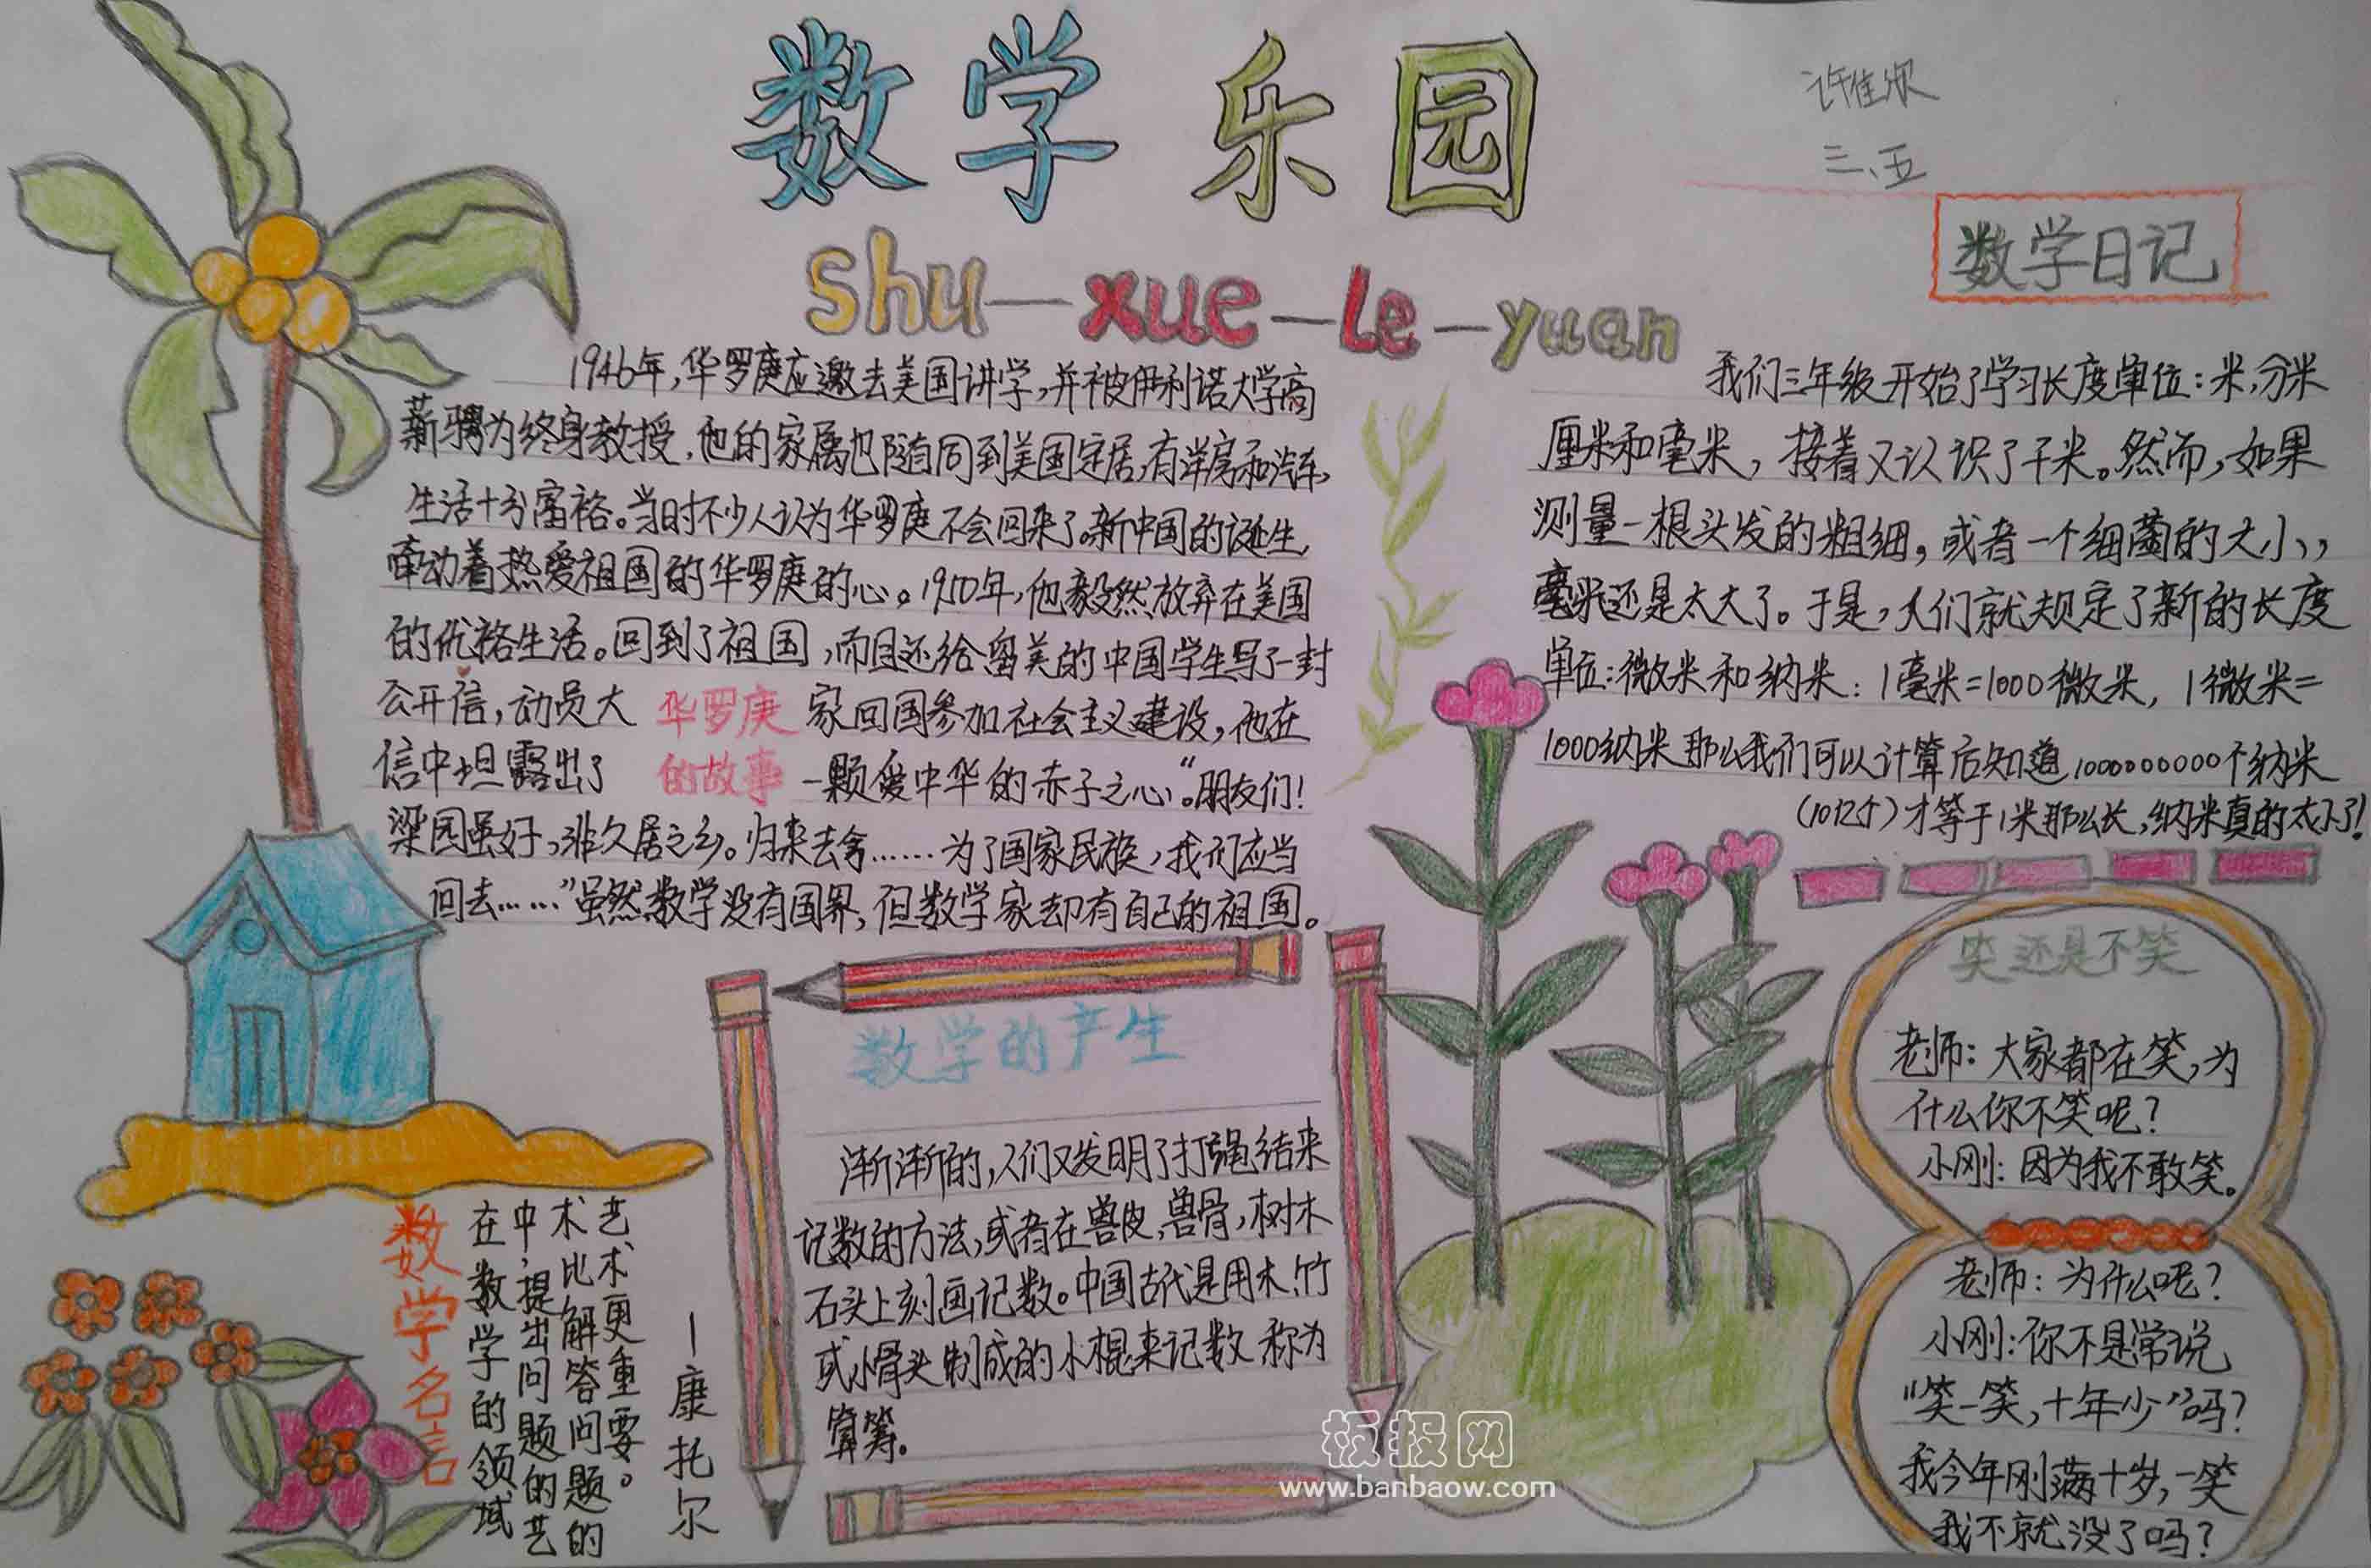 数学乐园
shu-xue-le-yuan
许佳欣
三、五
1946年,华罗庚应邀去美国讲学,并被伊利诺大学高
薪骋为终身教授,他的家属也随同到美国定居,有洋房和汽车,
生活十分富裕。当时不少人认为华罗庚不会回来了。新中国的诞生,
牵动着热爱祖国的华罗庚的心。1950年,他毅然放弃在美国
的优裕生活。回到了祖国,而且还给留美的中国学生写了一封
公开信,动员大家回国参加社会主义建设,他在
信中坦露出了一颗爱中华的赤子之心“。朋友们!
梁园虽好,非久居之乡。归来去兮……为了国家民族,我们应当
回去……”虽然数学没有国界,但数学家却有自己的祖国。
华罗庚
的故事
数学日记
我们三年级开始了学习长度单位:米,分米
厘米和毫米,接着又认识了千米。然而,如果
测量一根头发的粗细,或者一个细菌的大小,,
毫米还是太大了。于是,人们就规定了新的长度
单位:微米和纳米:1毫米=1000微米,1微米=
1000纳米那么我们可以计算后知道1000000000个纳米
(10亿个)才等于1米那么长,纳米真的太小了!
数学的产生
渐渐的,人们又发明了打绳结来
记数的方法,或者在兽皮,兽骨,树木
石头上刻画记数。中国古代是用木,竹
或小骨头制成的小棍来记数称为
算筹。
笑还是不笑
老师:大家都在笑,为
什么你不笑呢?
小刚:因为我不敢笑。
老师:为什么呢?
小刚:你不是常说
“笑一笑,十年少”吗?
我今年刚满十岁,一笑
我不就没了吗?
数学名言
在数学的领域
中,提出问题的艺
术比解答问题的
艺术更重要。
—康托尔
板报网
www.banbaow.com